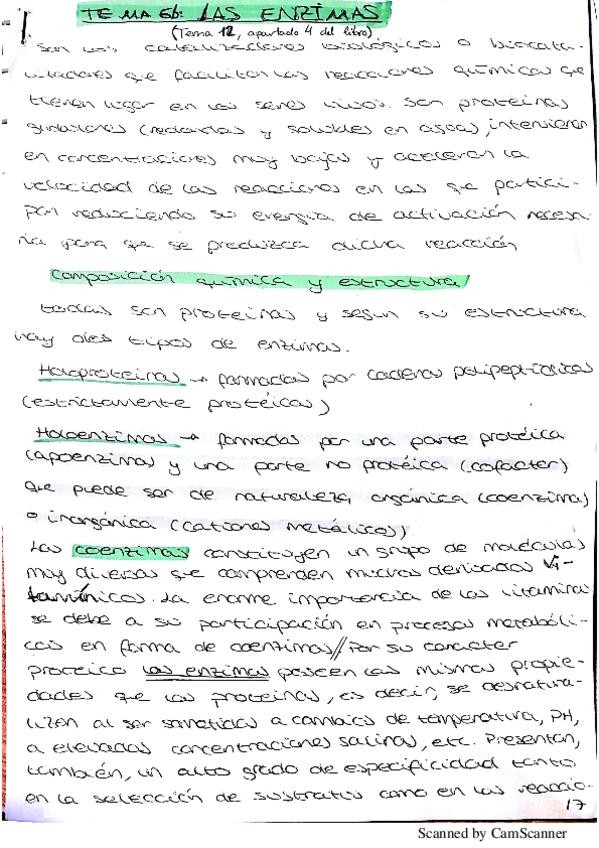 TEMA 6b: LAS ENZIMAS
(Tema 12, apartado 4 del libro)
Son los catalizadores biológicos o biocata-
lizadores que facilitan las reacciones químicas que
tienen lugar en los seres vivos. Son proteínas
globulares (redondas y solubles en agua), intervienen
en concentraciones muy bajas y aceleran la
velocidad de las reacciones en las que partici-
pan reduciendo su energía de activación necesa-
ria para que se produzca dicha reacción
Composición química y estructura
todas son proteínas y según su estructura
hay dos tipos de enzimas.
Holoproteínas → formadas por cadenas polipeptídicas
(estrictamente protéicas)
Holoenzimas → formadas por una parte protéica
(apoenzima) y una parte no protéica (cofactor)
que puede ser de naturaleza orgánica (coenzima)
o inorgánica (cationes metálicos)
Las coenzimas constituyen un grupo de moléculas
muy diversas que comprenden muchos derivados vi-
tamínicos. La enorme importancia de las vitaminas
se debe a su participación en procesos metabóli-
cos en forma de coenzimas// Por su carácter
proteico las enzimas poseen las mismas propie-
dades que las proteínas, es decir, se desnatura-
lizan al ser sometidas a cambios de temperatura, PH,
a elevadas concentraciones salinas, etc. Presentan,
también, un alto grado de especificidad tanto
en la selección de sustratos como en las reaccio-
17
Scanned by CamScanner